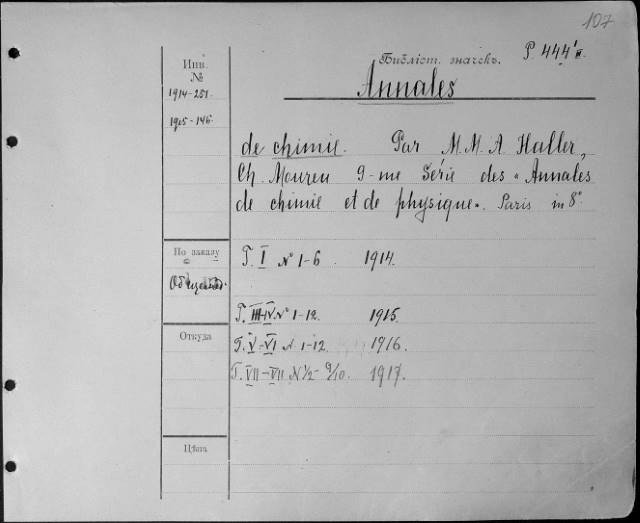 107
Библіот. значекъ. P 444/III
Инв.
№
Annales
1914-251.
1925-146.
de chimie. Par M.M.A. Haller,
Ch. Moureu 9-me Série des "Annales
de chimie et de physique". Paris in 8°
По заказу
Т. I № 1-6 1914.
Т. III-IV. № 1-12. 1915.
Откуда
Т. V-VI № 1-12. 1916.
Т. VII-VII № 1/2-9/10. 1917.
Цѣна